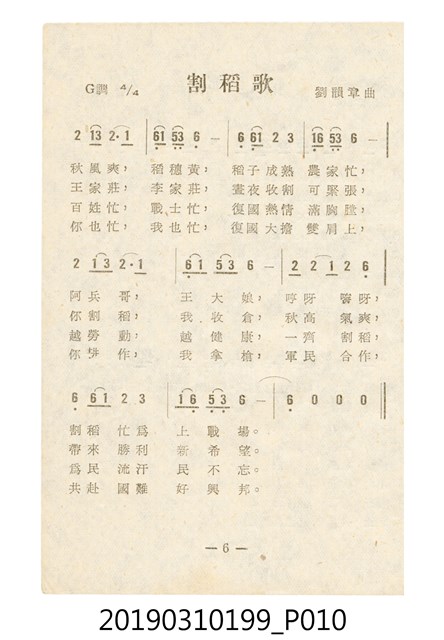 割稻歌
G調 4/4 劉韻章曲
2 13 2·1 | 61 53 6 — | 6 61 2 3 | 16 53 6 — |
秋風爽，稻穗黃，稻子成熟農家忙，
王家莊，李家莊，晝夜收割可緊張，
百姓忙，戰士忙，復國熱情滿胸膛，
你也忙，我也忙，復國大擔雙肩上，
2 13 2·1 | 61 53 6 — | 2 21 2 6 |
阿兵哥，王大娘，哼呀嗨呀，
你割稻，我收倉，秋高氣爽，
越勞動，越健康，一齊割稻，
你耕作，我拿槍，軍民合作，
6 61 2 3 | 16 53 6 — | 6 0 0 0 ‖
割稻忙爲上戰場。
帶來勝利新希望。
爲民流汗民不忘。
共赴國難好興邦。
— 6 —
20190310199_P010